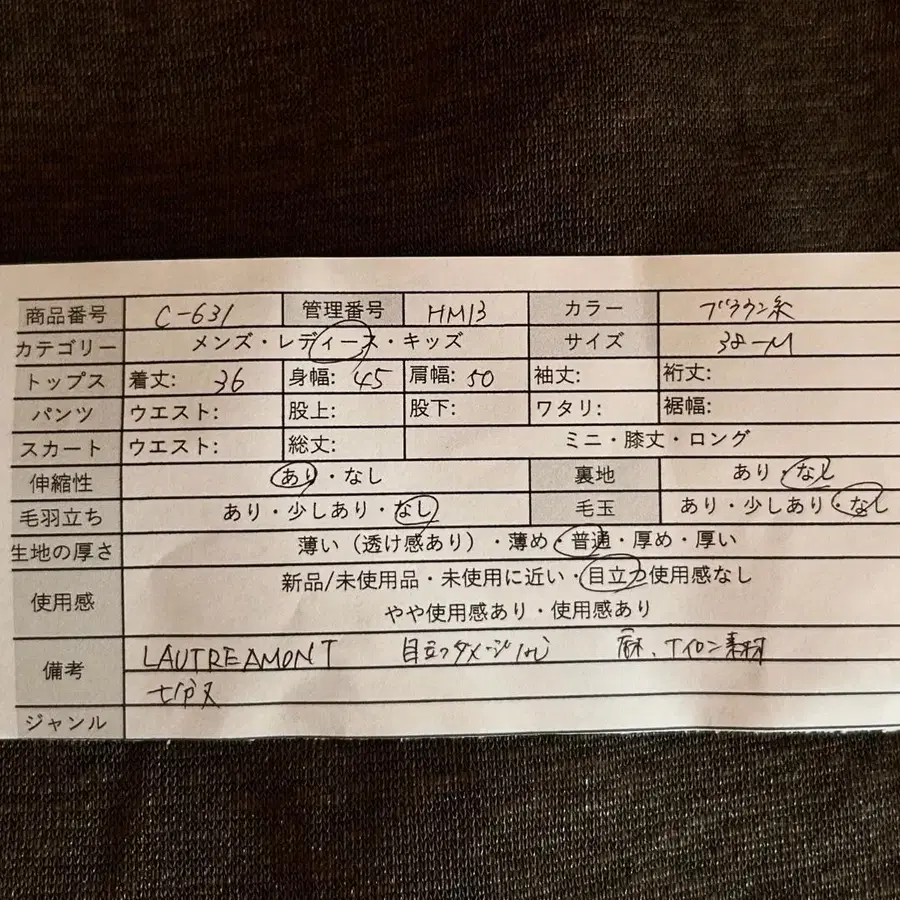 商品番号 C-631 管理番号 HM13 カラー ブラウン系
カテゴリー メンズ・レディース・キッズ サイズ 38-M
トップス 着丈: 36 身幅: 45 肩幅: 50 袖丈: 裄丈:
パンツ ウエスト: 股上: 股下: ワタリ: 裾幅:
スカート ウエスト: 総丈: ミニ・膝丈・ロング
伸縮性 あり・なし 裏地 あり・なし
毛羽立ち あり・少しあり・なし 毛玉 あり・少しあり・なし
生地の厚さ 薄い（透け感あり）・薄め・普通・厚め・厚い
使用感 新品/未使用品・未使用に近い・目立つ使用感なし
やや使用感あり・使用感あり
備考 LAUTREAMONT 目立つダメージなし 麻、ナイロン素材
七分丈
ジャンル